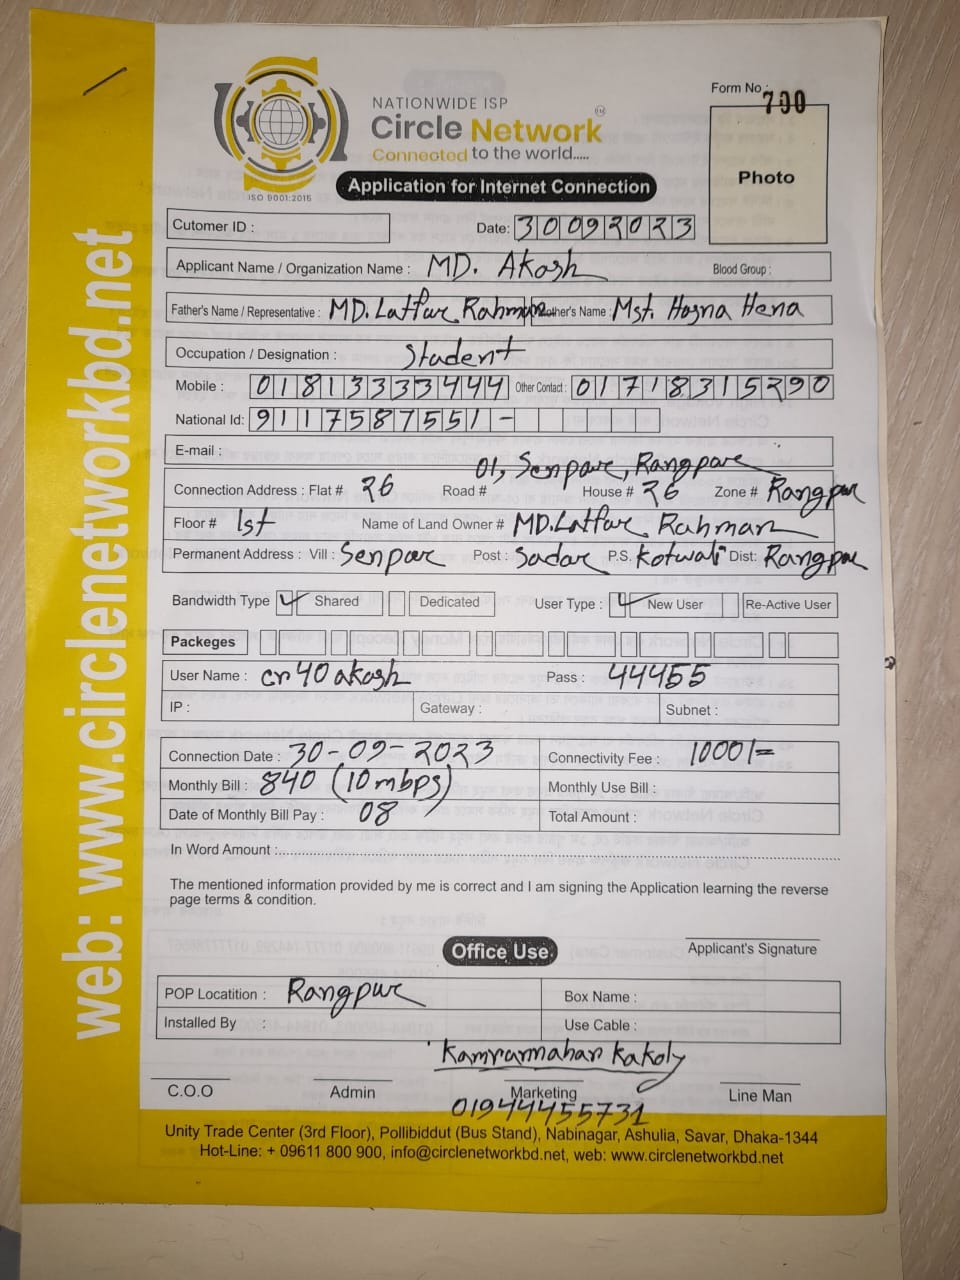 web: www.circlenetworkbd.net
NATIONWIDE ISP
Circle Network
Connected to the world.....
ISO 9001:2015
Form No : 700
Application for Internet Connection
Photo
Cutomer ID :
Date: 30092023
Applicant Name / Organization Name : MD. Akash
Blood Group :
Father's Name / Representative : MD. Latfur Rahman Mother's Name : Mst. Hosna Hena
Occupation / Designation : Student
Mobile : 01813333444 Other Contact : 01718315290
National Id: 9117587551 -
E-mail :
01, Senpare, Rangpare
Connection Address : Flat # 26 Road # House # 26 Zone # Rangpur
Floor # 1st Name of Land Owner # MD. Latfur Rahman
Permanent Address : Vill : Senpar Post : Sadar P.S. Kotwali Dist: Rangpur
Bandwidth Type Shared Dedicated User Type : New User Re-Active User
Packeges
User Name : cn40akash Pass : 44455
IP : Gateway : Subnet :
Connection Date : 30-09-2023 Connectivity Fee : 1000/=
Monthly Bill : 840 (10 mbps) Monthly Use Bill :
Date of Monthly Bill Pay : 08 Total Amount :
In Word Amount :
The mentioned information provided by me is correct and I am signing the Application learning the reverse
page terms & condition.
Applicant's Signature
Office Use
POP Locatition : Rangpur Box Name :
Installed By : Use Cable :
Kakoly
C.O.O Admin Marketing Line Man
01944455731
Unity Trade Center (3rd Floor), Pollibiddut (Bus Stand), Nabinagar, Ashulia, Savar, Dhaka-1344
Hot-Line: + 09611 800 900, info@circlenetworkbd.net, web: www.circlenetworkbd.net